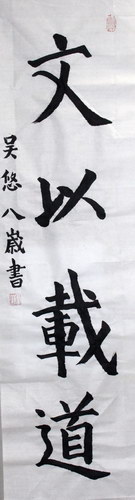 文以載道
吴悠八歲書